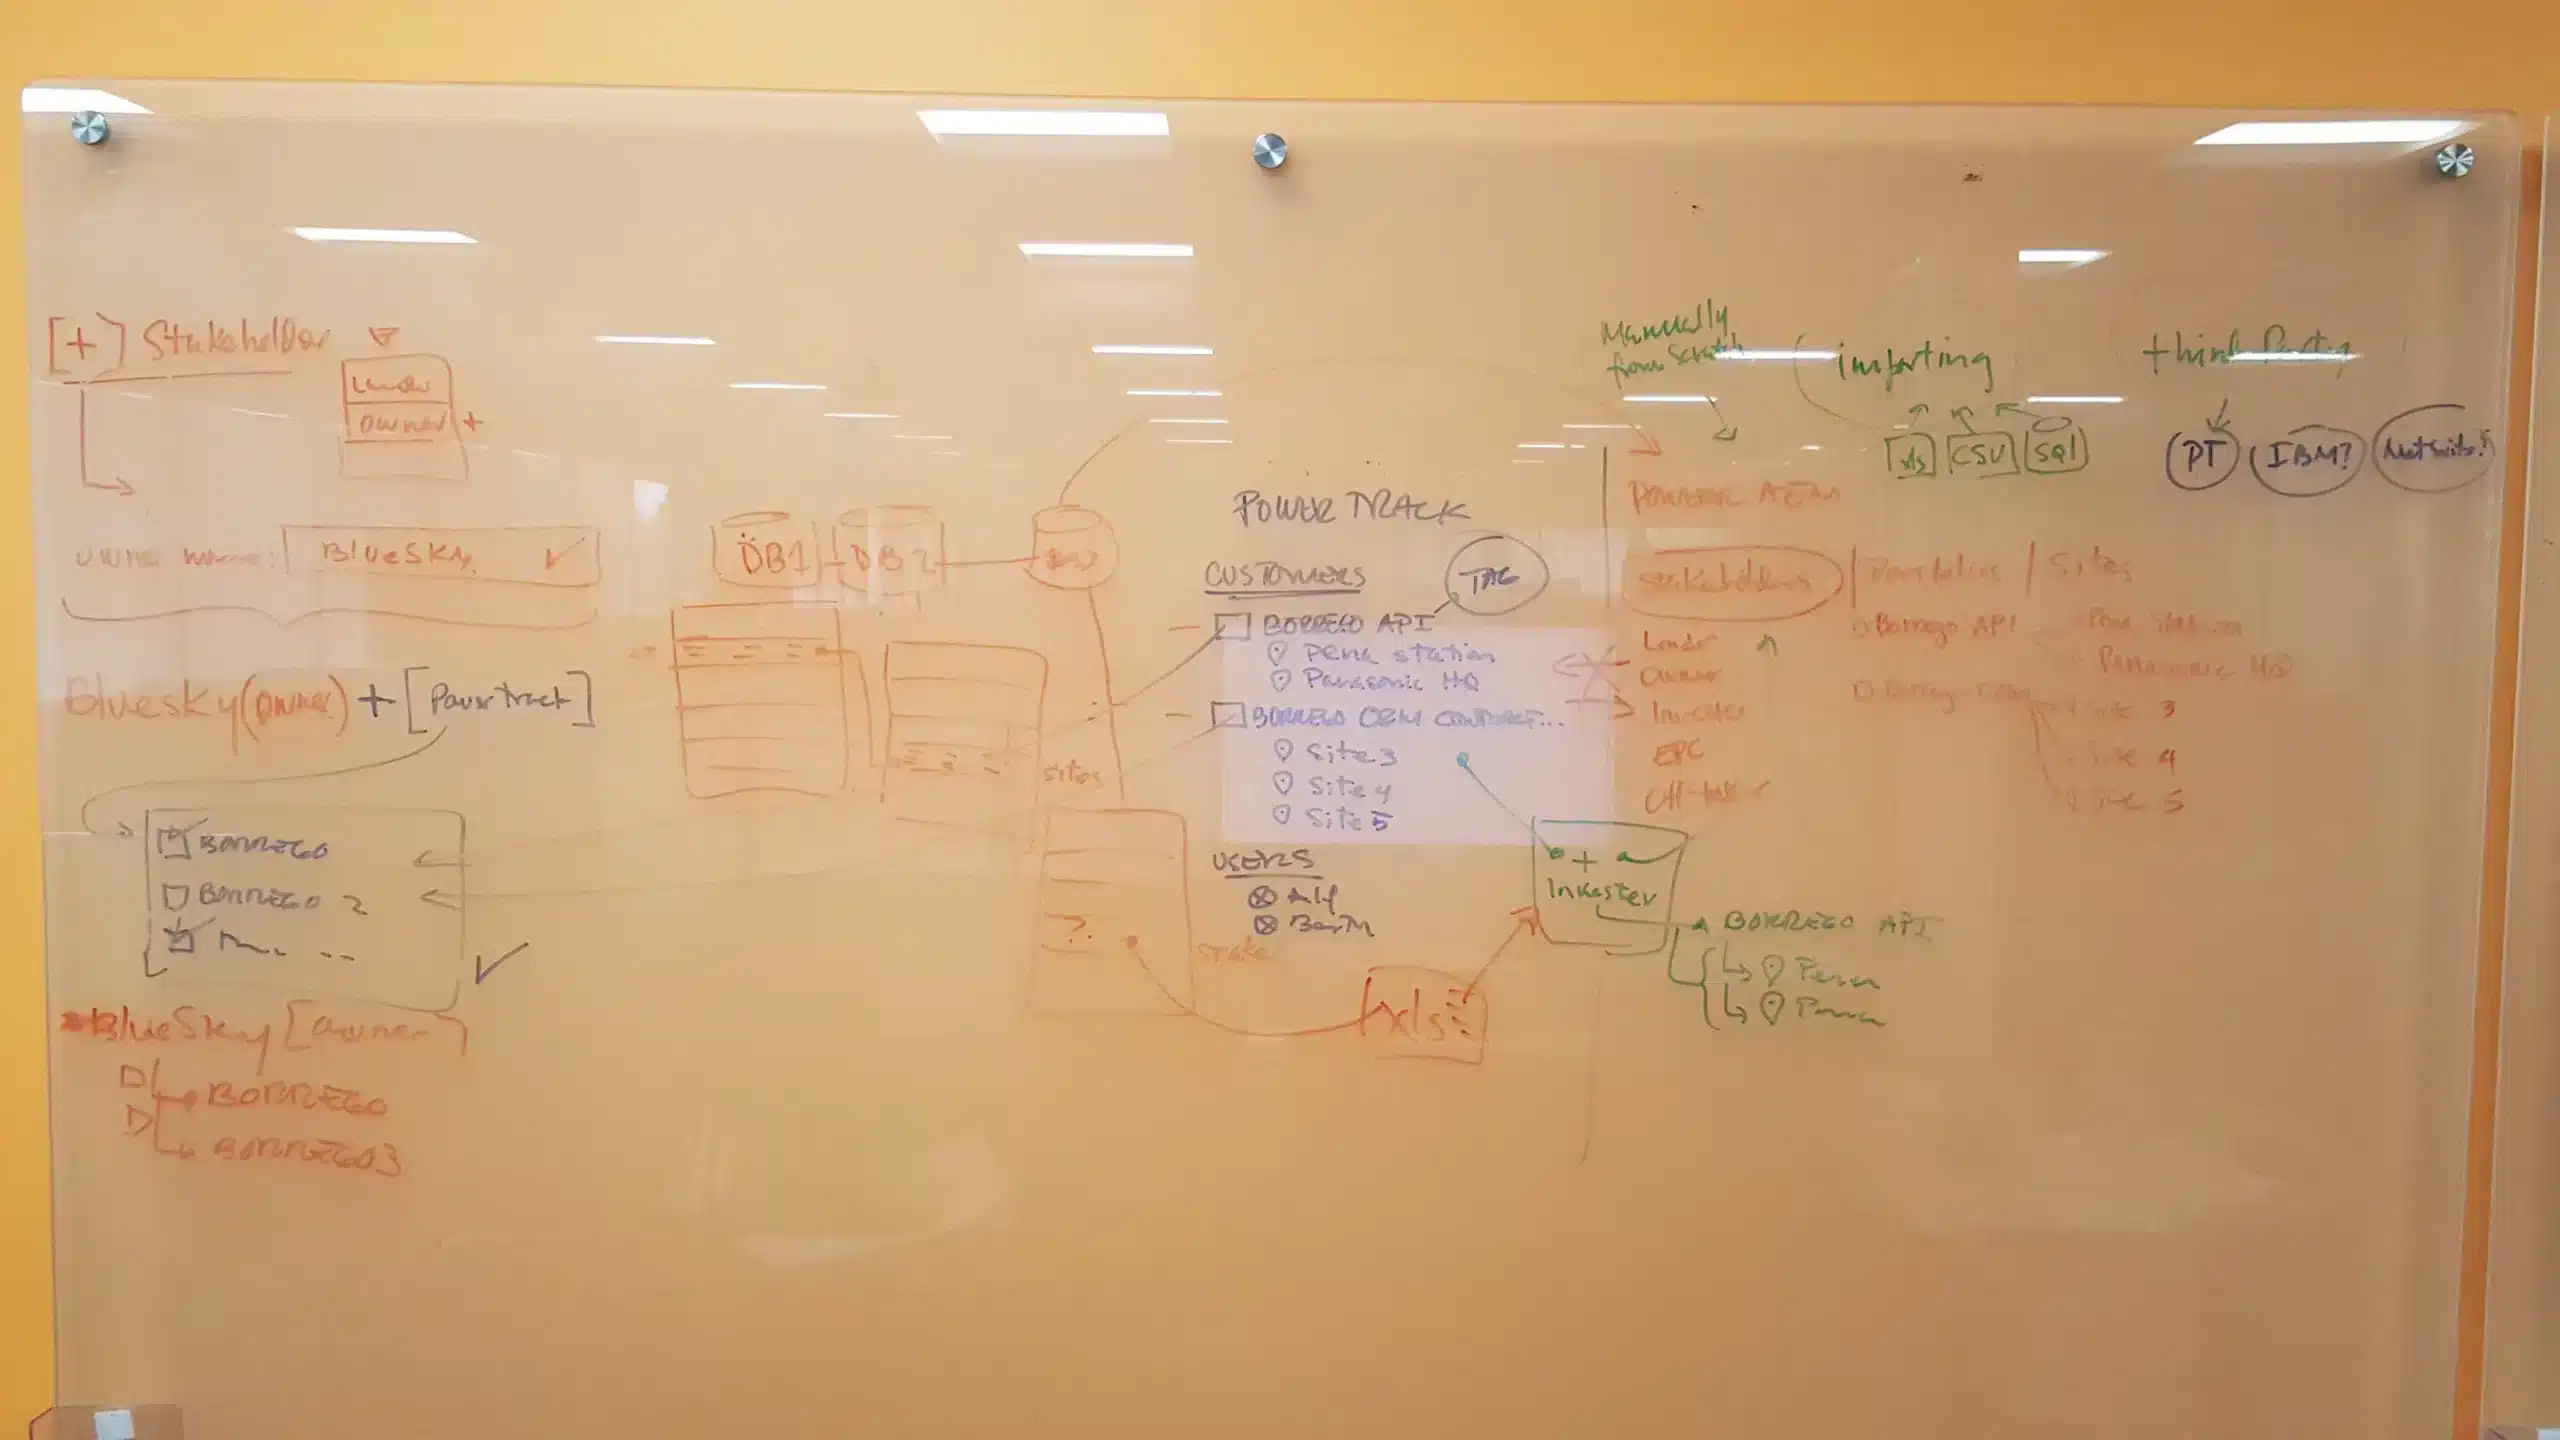 [+] Stakeholder
Lender
owner +
owner name: BlueSky
BlueSky (owner) + [PowerTrack]
BORREGO
BORREGO 2
BlueSky [owner]
BORREGO
BORREGO3
DB1
DB2
sites
?
xls
POWER TRACK
CUSTOMERS
TAG
BORREGO API
Pena station
Panasonic HQ
BORREGO O&M CONTRACT...
Site 3
Site 4
Site 5
USERS
Aly
Manually
from Scratch
importing
xls
CSV
SQL
third Party
PT
IBM?
NetSuite?
Stakeholders | Portfolios | Sites
Lender
Owner
Investor
EPC
Off-taker
Borrego API
Pena Station
Panasonic HQ
Borrego O&M
Site 3
Site 4
Site 5
+
Investor
BORREGO API
Pena